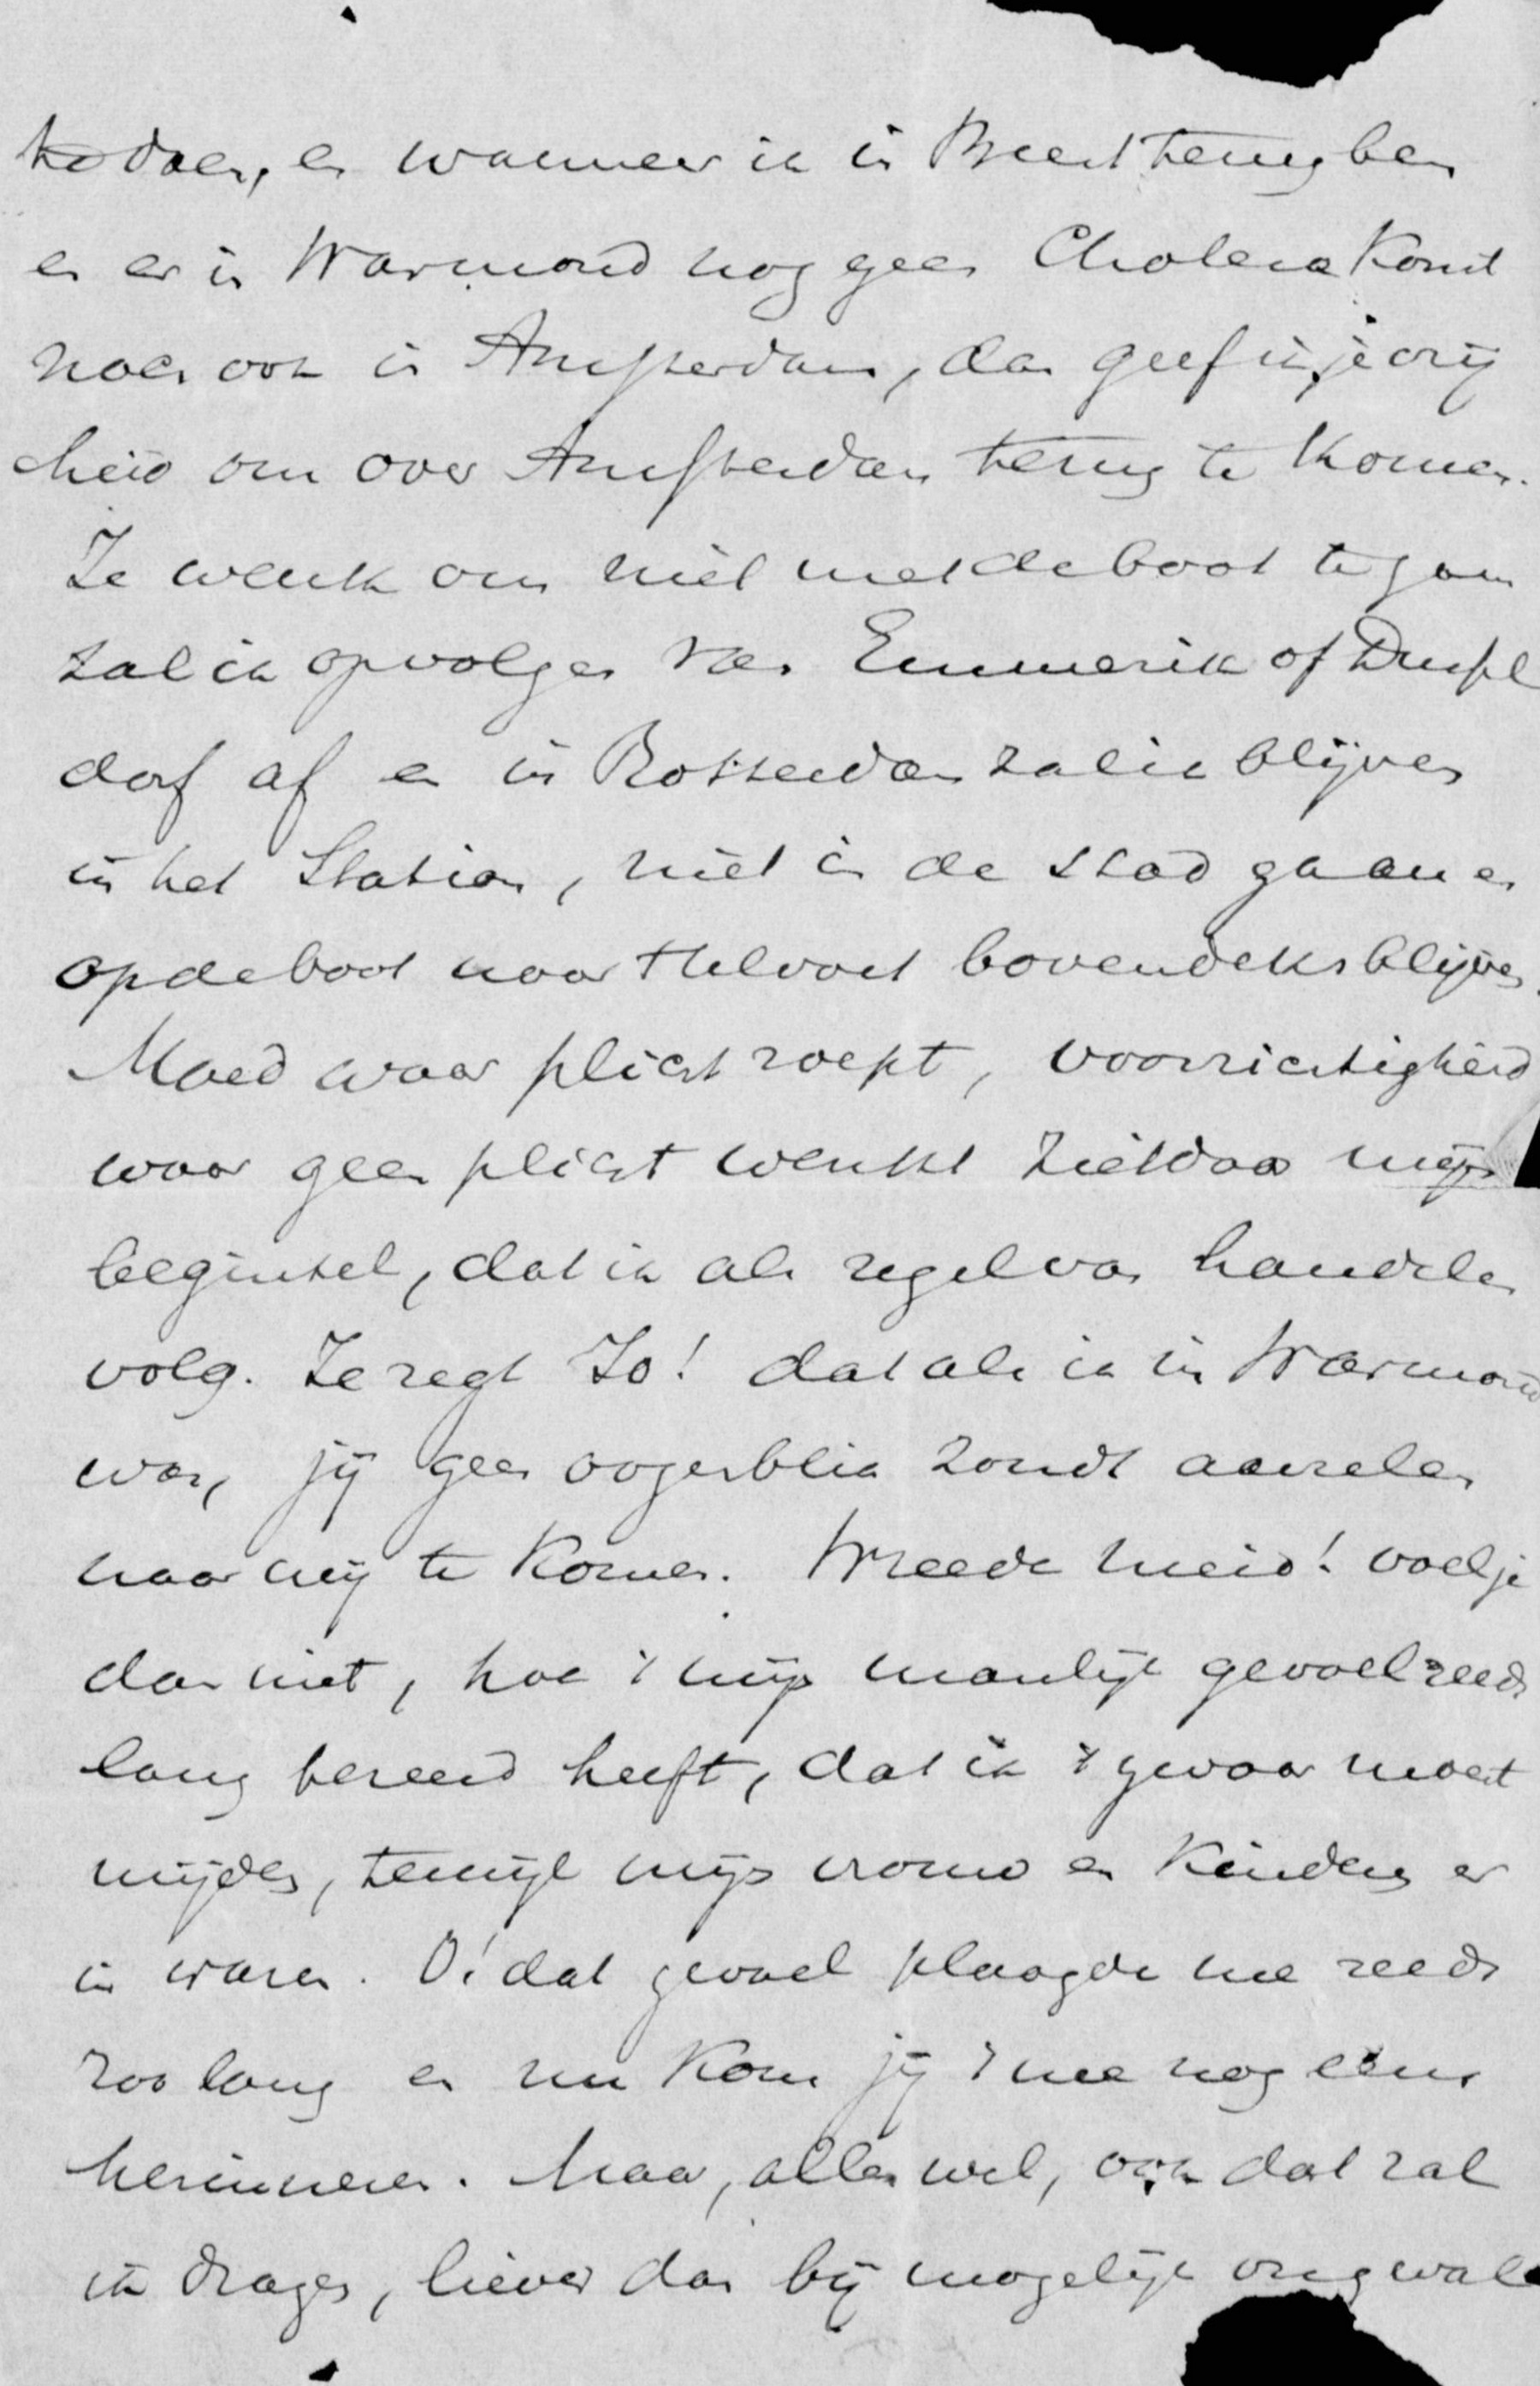 te doen, en wanneer ik in Breest terug ben
en er in Warmond nog geen Cholera komt
noch ook in Amsterdam, dan geef ik je vrij
heid om over Amsterdam terug te komen.
Je wenk om niet met de boot te gaan
zal ik opvolgen van Emmerik of Dussel
dorf af en in Rotterdam zal ik blijven
in het Station, niet in de stad gaan en
op de boot naar Helvoet bovendeks blijven.
Moed waar plicht roept, voorzichtigheid
waar geen plicht wenkt ziedaar mijn
beginsel, dat ik als regel van handelen
volg. Je zegt Jo! dat als ik in Warmond
was, jij geen oogenblik zoudt aarzelen
naar mij te komen. Wreede meid! voel je
dan niet, hoe 't mijn manlijk gevoel reeds
lang bezeerd heeft, dat ik 't gevaar moest
mijden, terwijl mijn vrouw en kinderen er
in waren. O! dat gevoel plaagde me reeds
zoo lang en nu kom jij 't me nog eens
herinneren. Maar, alles wel, ook dat zal
ik dragen, liever dan bij mogelijk